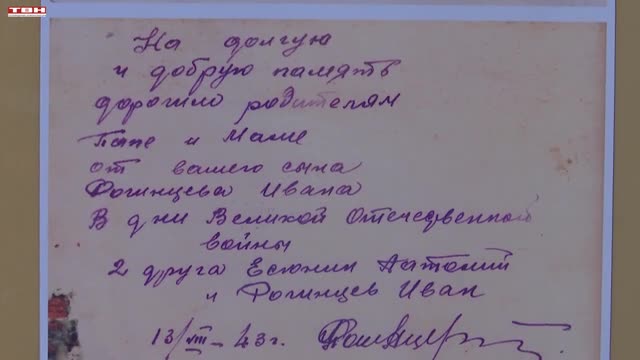 ТВН
На долгую
и добрую память
дорогим родителям
Папе и Маме
от вашего сына
Рогинцева Ивана
В дни Великой Отечественной
войны
2 друга Есюнин Анатолий
и Рогинцев Иван
13/VIII-43г.